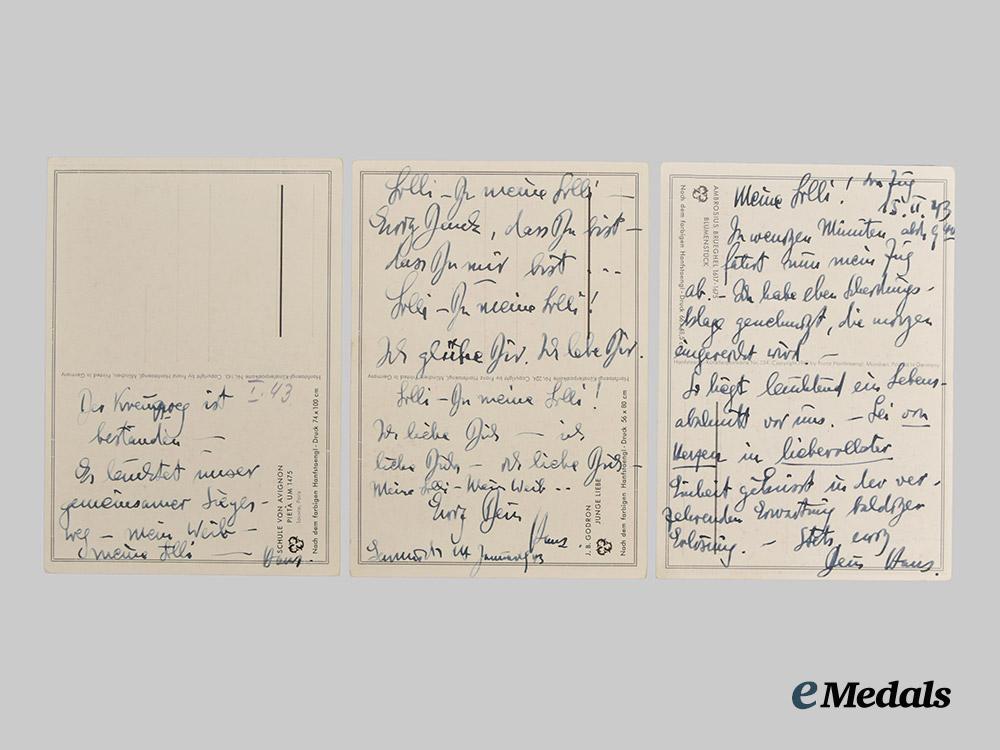 I. 43
Der Kreuzweg ist
bestanden —
Es leuchtet unser
gemeinsamer Sieges-
weg — mein Weib —
meine Lolli —
Hans.
SCHULE VON AVIGNON
PIETA UM 1475
Louvre, Paris
Nach dem farbigen Hanfstaengl-Druck 74 x 100 cm
Hanfstaengl-Künstlerpostkarte Nr. Copyright by Franz Hanfstaengl, München, Printed in Germany
Lolli — Du meine Lolli —
Ewig Dank, dass Du bist —
dass Du mir bist ...
Lolli — Du meine Lolli!
Ich glühe Dir. Ich lebe Dir.
Lolli — Du meine Lolli!
Ich liebe Dich — ich
liebe Dich — ich liebe Dich —
Meine Lolli — Mein Weib --
Ewig Dein
Hans.
14 Januar 43
J. B. GODRON
JUNGE LIEBE
Nach dem farbigen Hanfstaengl-Druck 56 x 80 cm
Hanfstaengl-Künstlerpostkarte Nr. Copyright by Franz Hanfstaengl, München, Printed in Germany
Meine Lolli! Im Zug
15. II. 43
In wenigen Minuten, abds 9
fährt nun mein Zug
ab. — Ich habe eben Scheidungs-
klage genehmigt, die morgen
eingereicht wird. —
So liegt leuchtend ein Lebens-
abschnitt vor uns. — Sei von
Herzen in liebevollster
Einheit geküsst in der ver-
zehrenden Erwartung baldiger
Erlösung. — Stets, ewig
Dein Hans.
AMBROSIUS BRUEGHEL 1617-1675
BLUMENSTÜCK
Nach dem farbigen Hanfstaengl-Druck
eMedals